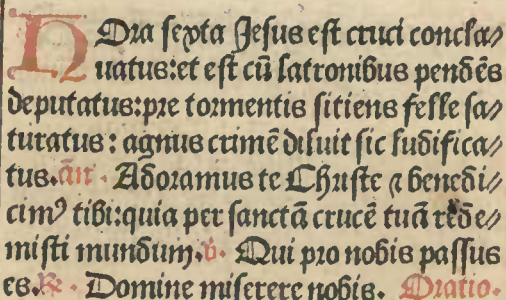 Hora sexta Jesus est cruci concla⸗
uatus:et est cū latronibus pendēs
deputatus:pre tormentis sitiens felle sa⸗
turatus: agnus crimē diluit sic ludifica⸗
tus.añ. Adoramus te Christe ⁊ benedi⸗
cimꝰ tibi:quia per sanctā crucē tuā rede⸗
misti mundum.v̄. Qui pro nobis passus
es.℟. Domine miserere nobis. Oratio.